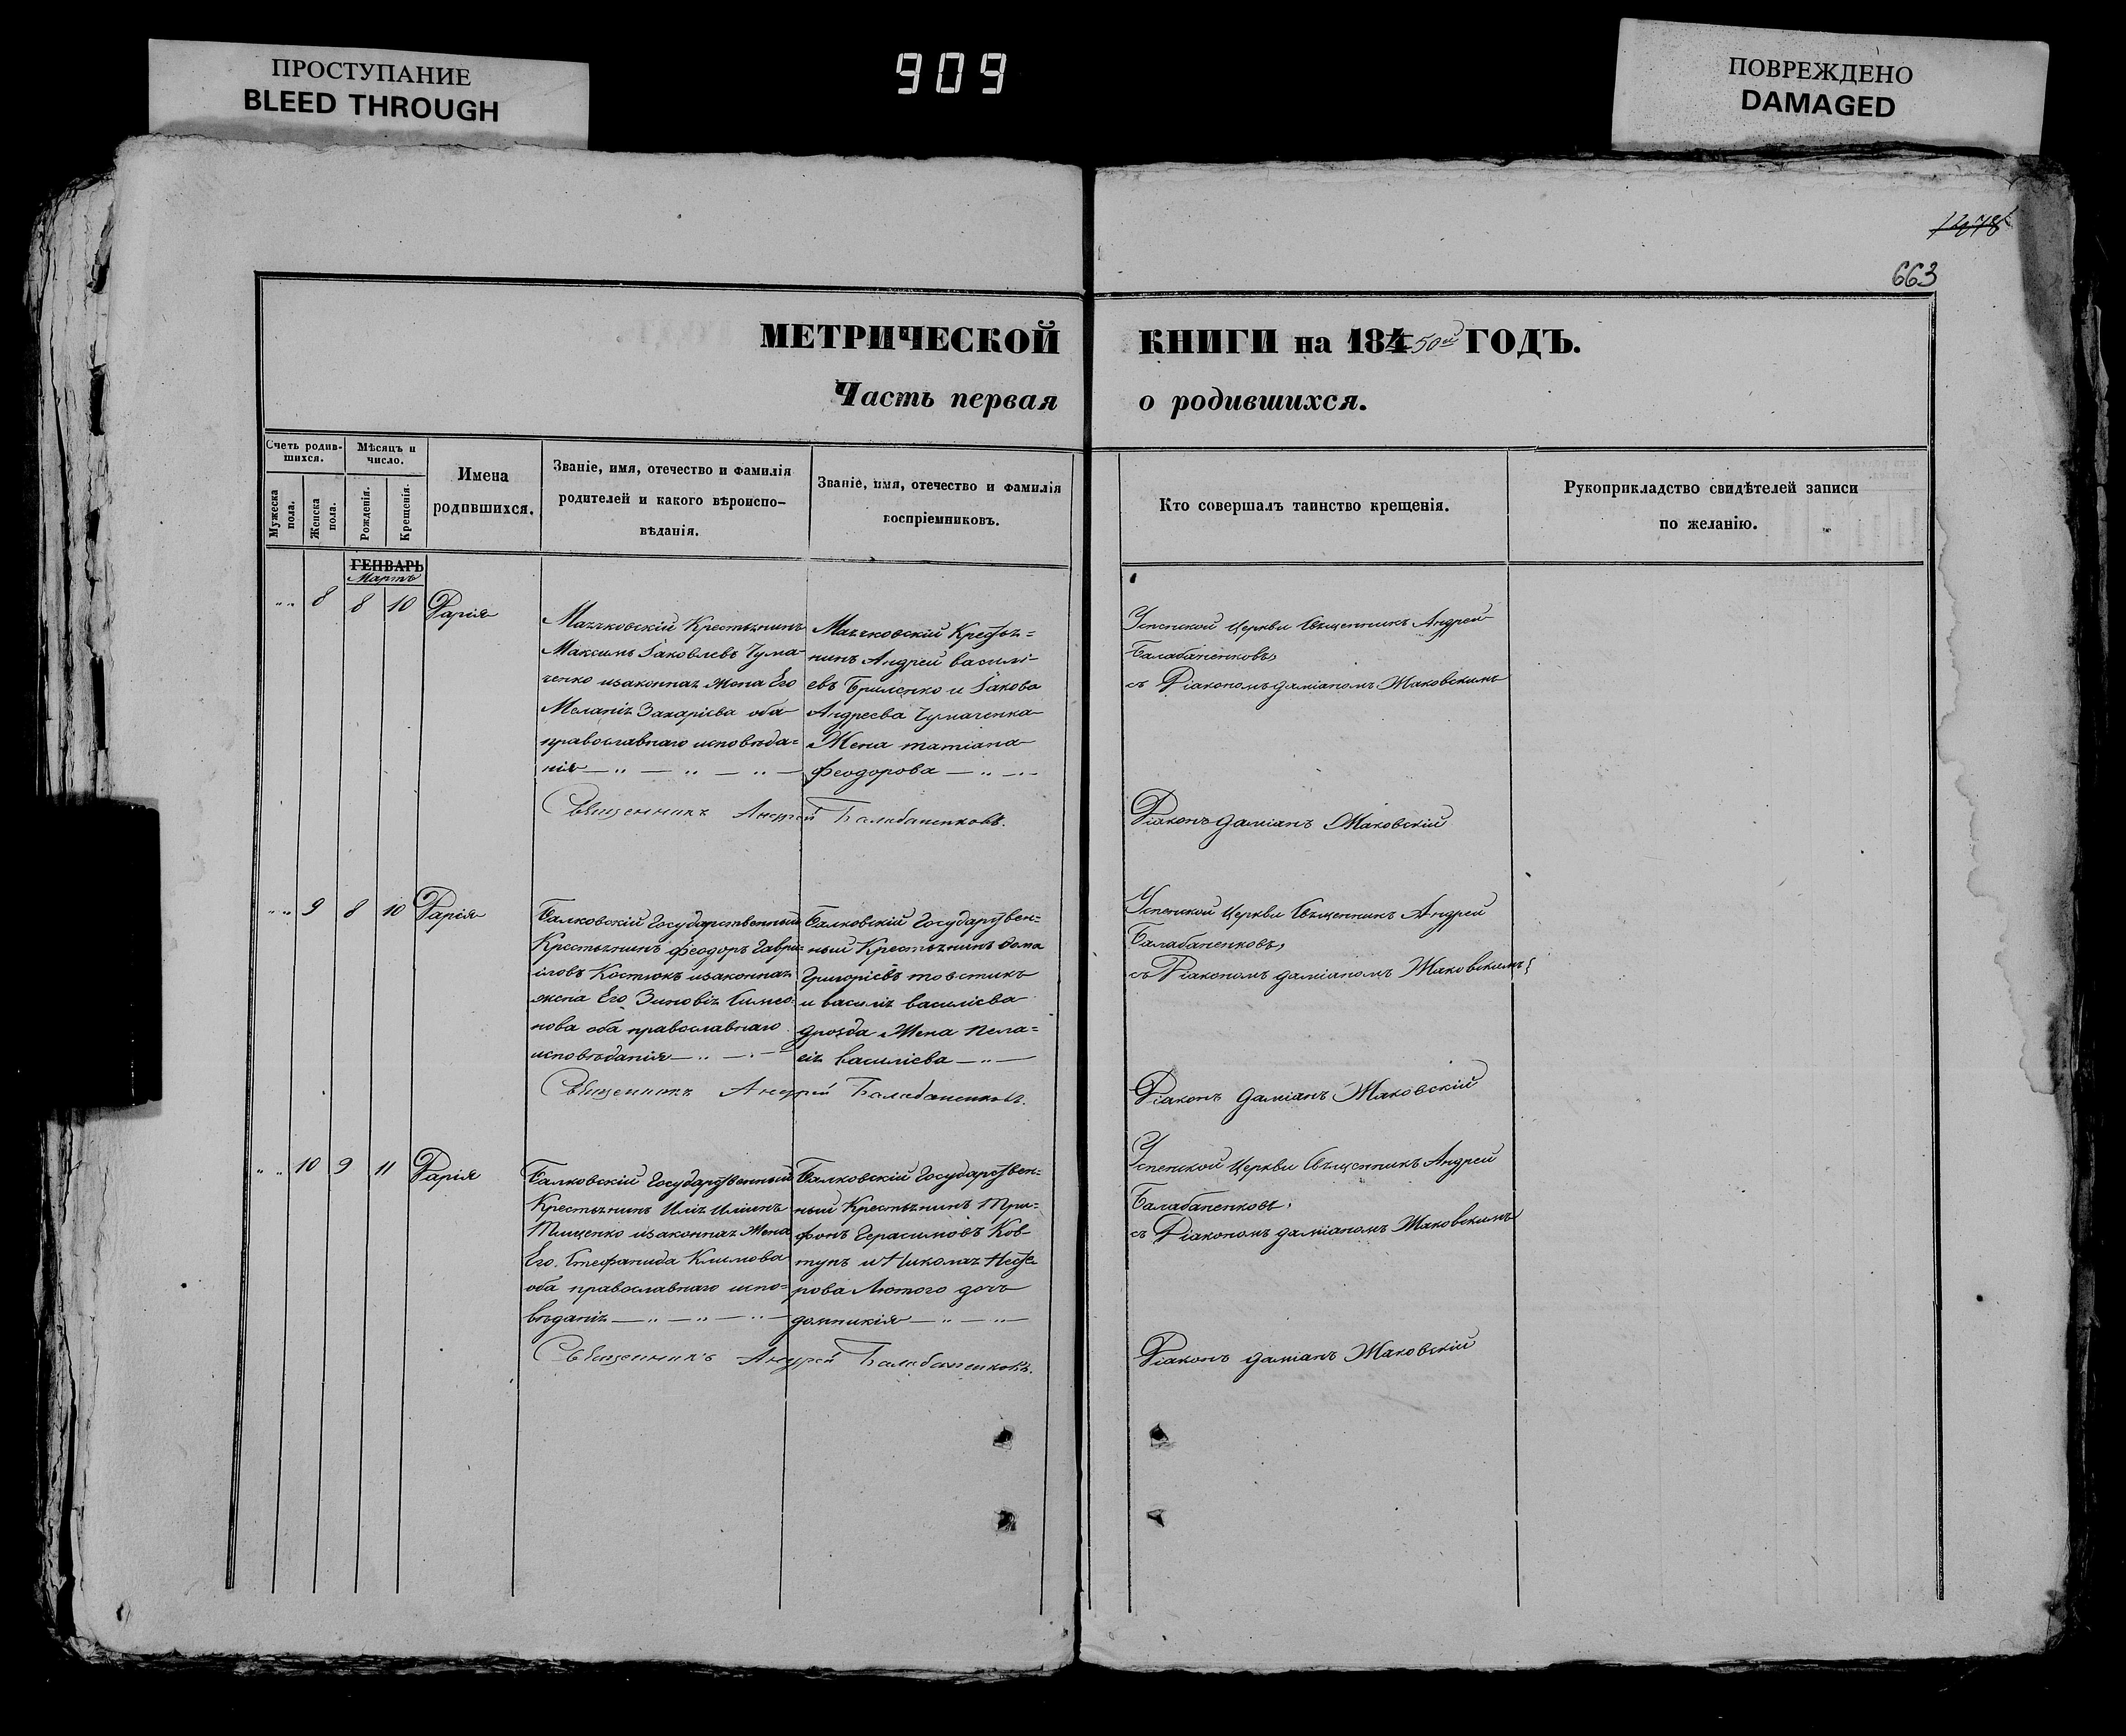 ПРОСТУПАНИЕ
BLEED THROUGH
909
ПОВРЕЖДЕНО
DAMAGED
1278
663
МЕТРИЧЕСКОЙ КНИГИ на 184 50й ГОДЪ.
Часть первая о родившихся.
Счетъ родив-
шихся.
Мужеска пола.
Женска пола.
Мѣсяцъ и
число.
Рожденія.
Крещенія.
Имена
родившихся.
Званіе, имя, отечество и фамилія
родителей и какого вѣроиспо-
вѣданія.
Званіе, имя, отечество и фамилія
воспріемниковъ.
Кто совершалъ таинство крещенія.
Рукоприкладство свидѣтелей записи
по желанію.
ГЕНВАРЬ
Мартъ
„ „ 8 8 10 Дарія
Крестьянинъ
Максимъ Іаковлевъ Чума-
ченко изаконная Жена Его
Меланія Захаріева оба
православнаго исповѣда=
нія — „ — „ — „ —
Кресть=
нинъ Андрей василі-
евъ Бриленко и Іакова
Андреева Чумаченка
Жена татіана
феодорова — „ — „
Священникъ Андрей Балабаненковъ.
Успенской Церкви Священникъ Андрей
Балабаненковъ,
съ Діакономъ даміаномъ Маковскимъ
Діаконъ даміанъ Маковскій
„ „ 9 8 10 Дарія
Балковскій Государственный
Крестьянинъ феодоръ Гаври=
иловъ Костюкъ изаконная
жена Его Зиновія Симео-
нова оба православнаго
исповѣданія — „ — „ —
Балковскій Государствен=
ный Крестьянинъ дома
Григоріевъ товстикъ
и василія василіева
дрозда Жена пела=
гія василіева — „ —
Священникъ Андрей Балабаненковъ.
Успенской Церкви Священникъ Андрей
Балабаненковъ,
съ Діакономъ даміаномъ Маковскимъ
Діаконъ даміанъ Маковскій
„ „ 10 9 11 Дарія
Балковскій Государственный
Крестьянинъ Илія Иліинъ
Тищенко изаконная Жена
Его Стефанида Климова
оба православнаго испо=
вѣданія — „ — „ — „ —
Балковскій Государствен=
ный Крестьянинъ Три=
фонъ Герасимовъ Ков-
тунъ и Николая Несте
рова Лютого дочь
домникія — „ — „ —
Священникъ Андрей Балабаненковъ.
Успенской Церкви Священникъ Андрей
Балабаненковъ,
съ Діакономъ даміаномъ Маковскимъ
Діаконъ даміанъ Маковскій